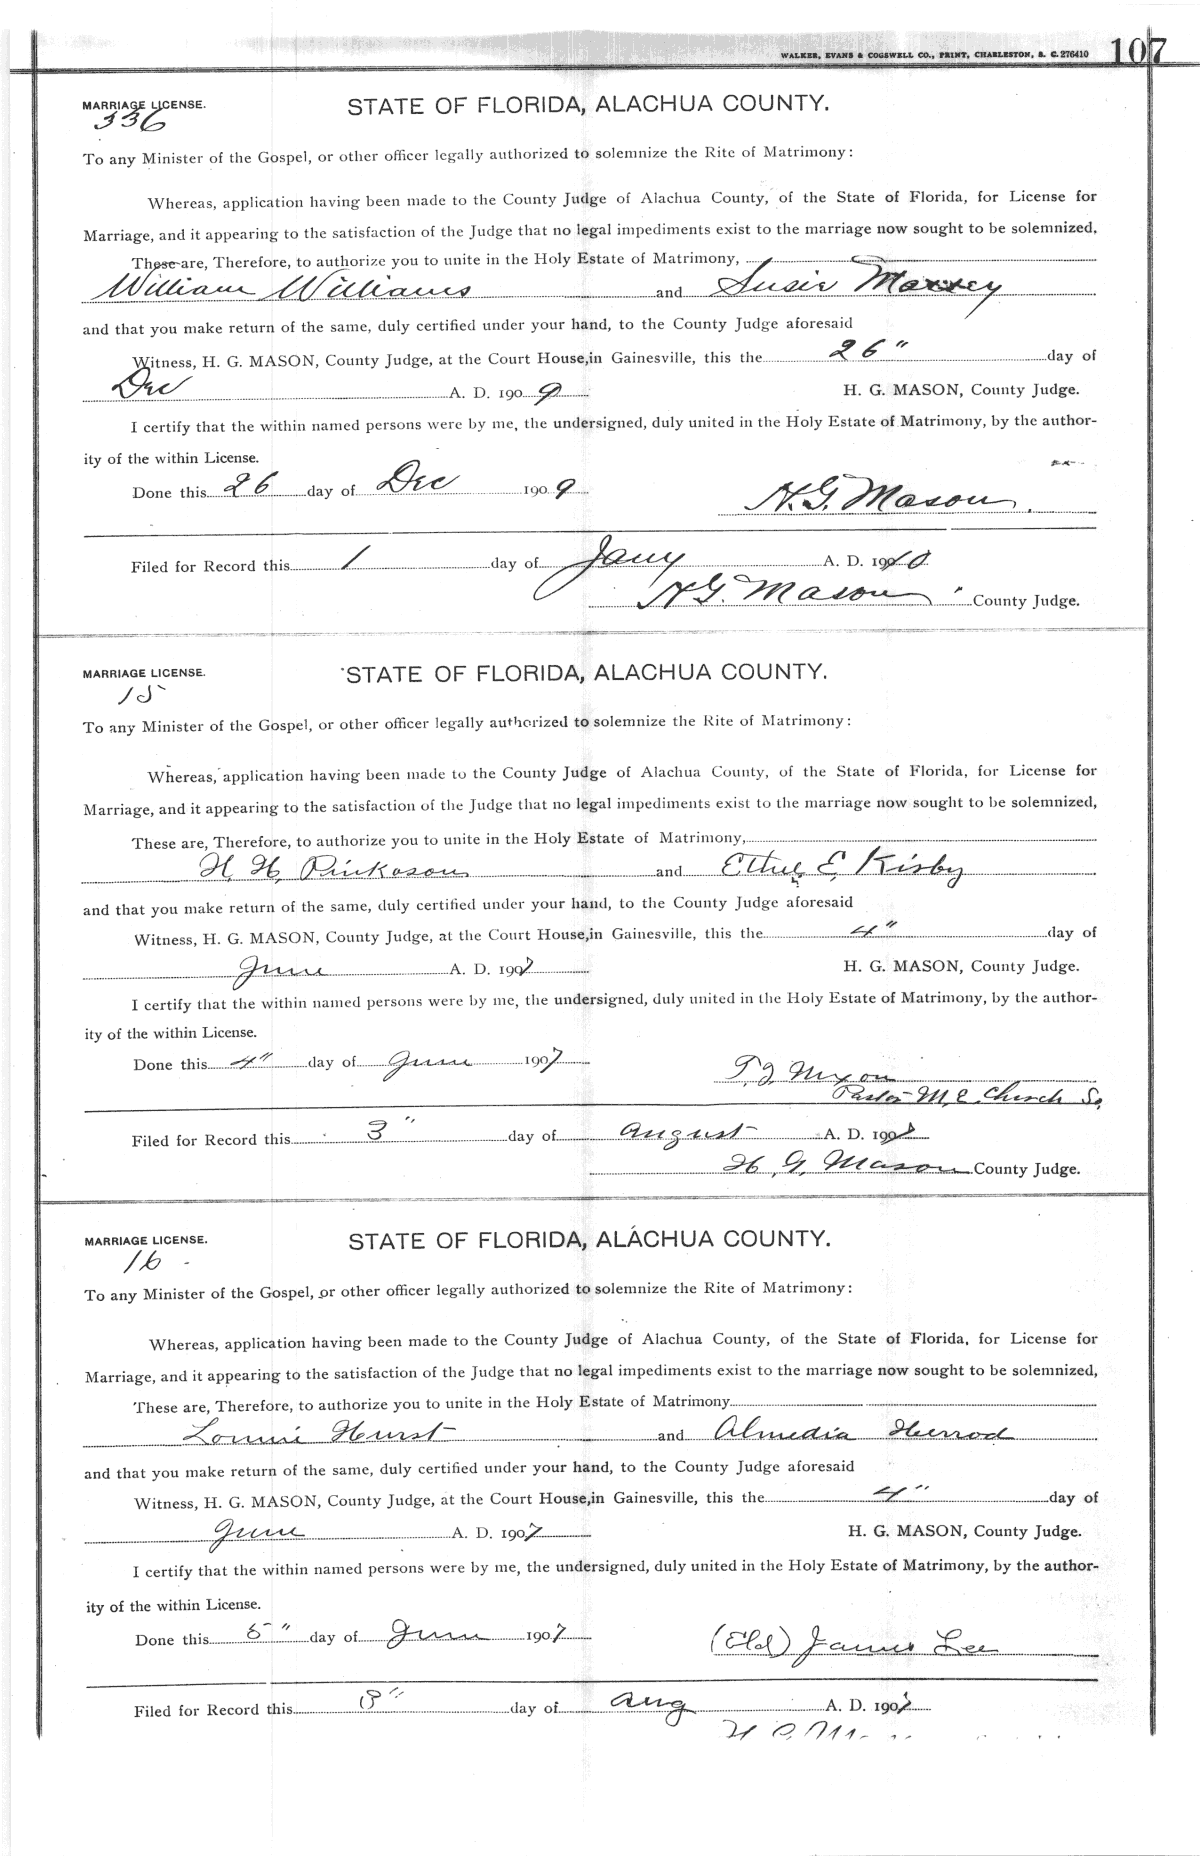 WALKER, EVANS & COGSWELL CO., PRINT, CHARLESTON, S. C. 276410 107
MARRIAGE LICENSE. STATE OF FLORIDA, ALACHUA COUNTY.
336
To any Minister of the Gospel, or other officer legally authorized to solemnize the Rite of Matrimony:
Whereas, application having been made to the County Judge of Alachua County, of the State of Florida, for License for
Marriage, and it appearing to the satisfaction of the Judge that no legal impediments exist to the marriage now sought to be solemnized,
These are, Therefore, to authorize you to unite in the Holy Estate of Matrimony,
William Williams and Susie
and that you make return of the same, duly certified under your hand, to the County Judge aforesaid
Witness, H. G. MASON, County Judge, at the Court House, in Gainesville, this the 26" day of
Dec A. D. 1909 H. G. MASON, County Judge.
I certify that the within named persons were by me, the undersigned, duly united in the Holy Estate of Matrimony, by the author-
ity of the within License.
Done this 26 day of Dec 1909 H. G. Mason.
Filed for Record this 1 day of Jany A. D. 1910
H G. Mason County Judge.
MARRIAGE LICENSE. STATE OF FLORIDA, ALACHUA COUNTY.
15
To any Minister of the Gospel, or other officer legally authorized to solemnize the Rite of Matrimony:
Whereas, application having been made to the County Judge of Alachua County, of the State of Florida, for License for
Marriage, and it appearing to the satisfaction of the Judge that no legal impediments exist to the marriage now sought to be solemnized,
These are, Therefore, to authorize you to unite in the Holy Estate of Matrimony,
H. H. Pinkoson and Ethel E. Kirby
and that you make return of the same, duly certified under your hand, to the County Judge aforesaid
Witness, H. G. MASON, County Judge, at the Court House, in Gainesville, this the 4" day of
June A. D. 1907 H. G. MASON, County Judge.
I certify that the within named persons were by me, the undersigned, duly united in the Holy Estate of Matrimony, by the author-
ity of the within License.
Done this 4" day of June 1907 T. J. Nixon
Pastor M. E. Church So.
Filed for Record this 3" day of August A. D. 1907
H. G. Mason County Judge.
MARRIAGE LICENSE. STATE OF FLORIDA, ALACHUA COUNTY.
16
To any Minister of the Gospel, or other officer legally authorized to solemnize the Rite of Matrimony:
Whereas, application having been made to the County Judge of Alachua County, of the State of Florida, for License for
Marriage, and it appearing to the satisfaction of the Judge that no legal impediments exist to the marriage now sought to be solemnized,
These are, Therefore, to authorize you to unite in the Holy Estate of Matrimony
Lonnie Hurst and Almedia Herrod
and that you make return of the same, duly certified under your hand, to the County Judge aforesaid
Witness, H. G. MASON, County Judge, at the Court House, in Gainesville, this the 4" day of
June A. D. 1907 H. G. MASON, County Judge.
I certify that the within named persons were by me, the undersigned, duly united in the Holy Estate of Matrimony, by the author-
ity of the within License.
Done this 5" day of June 1907 (Eld) James Lee
Filed for Record this day of Aug A. D. 1907